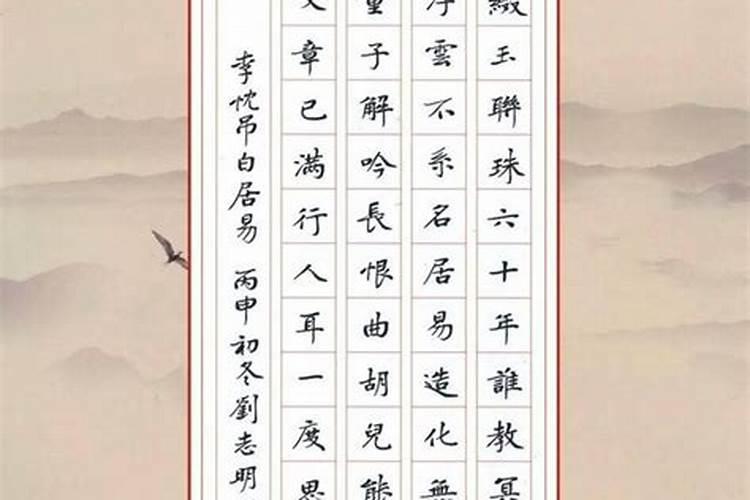 綴玉聯珠六十年誰教冥
浮雲不系名居易造化無
童子解吟長恨曲胡兒能
文章已滿行人耳一度思
李忱吊白居易 丙申初冬劉志明